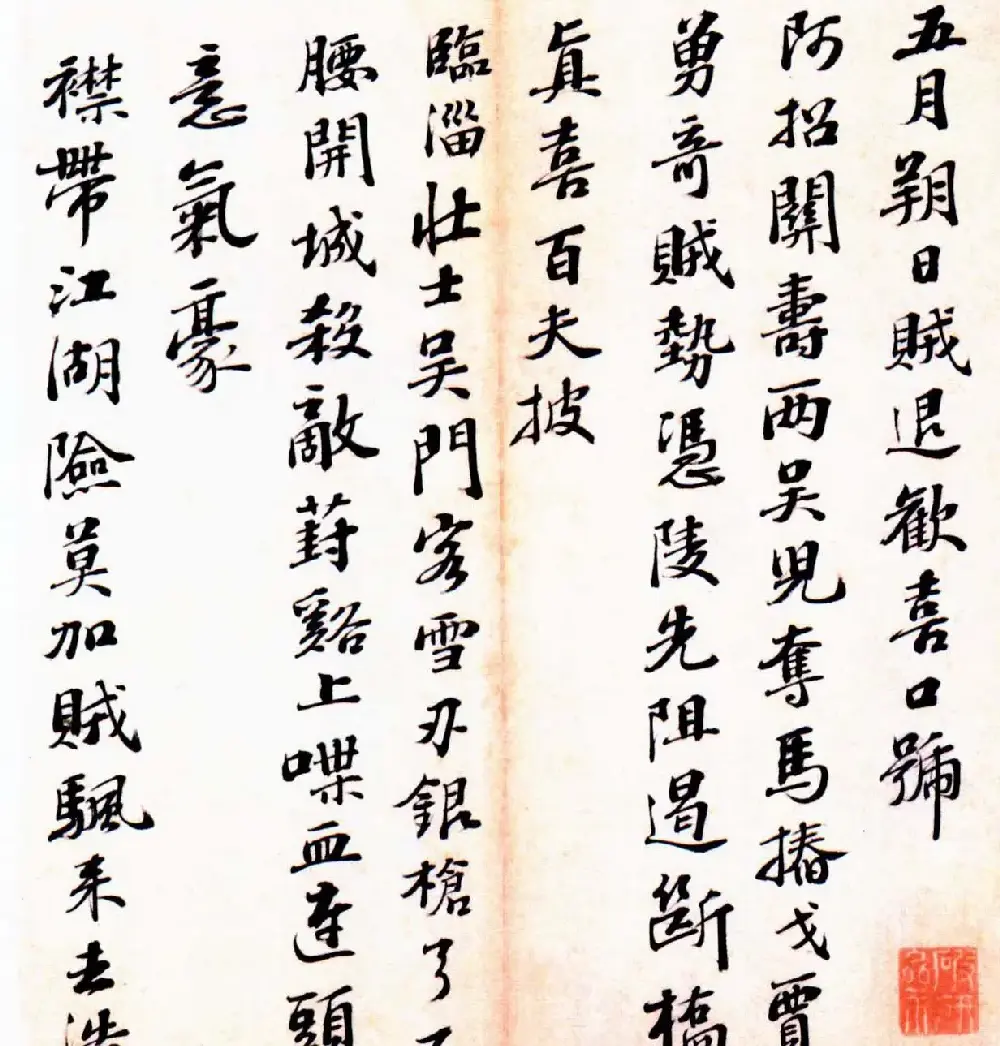 五月朔日賊退歡喜口號
阿招關壽兩吴兒奪馬摏戈賈
勇奇賊勢憑陵先阻遏斷橋
真喜百夫披
臨淄壯士吴門客雪刃銀槍了
腰開城殺敵葑谿上喋血連頭
意氣豪
襟帶江湖險莫加賊颿來去